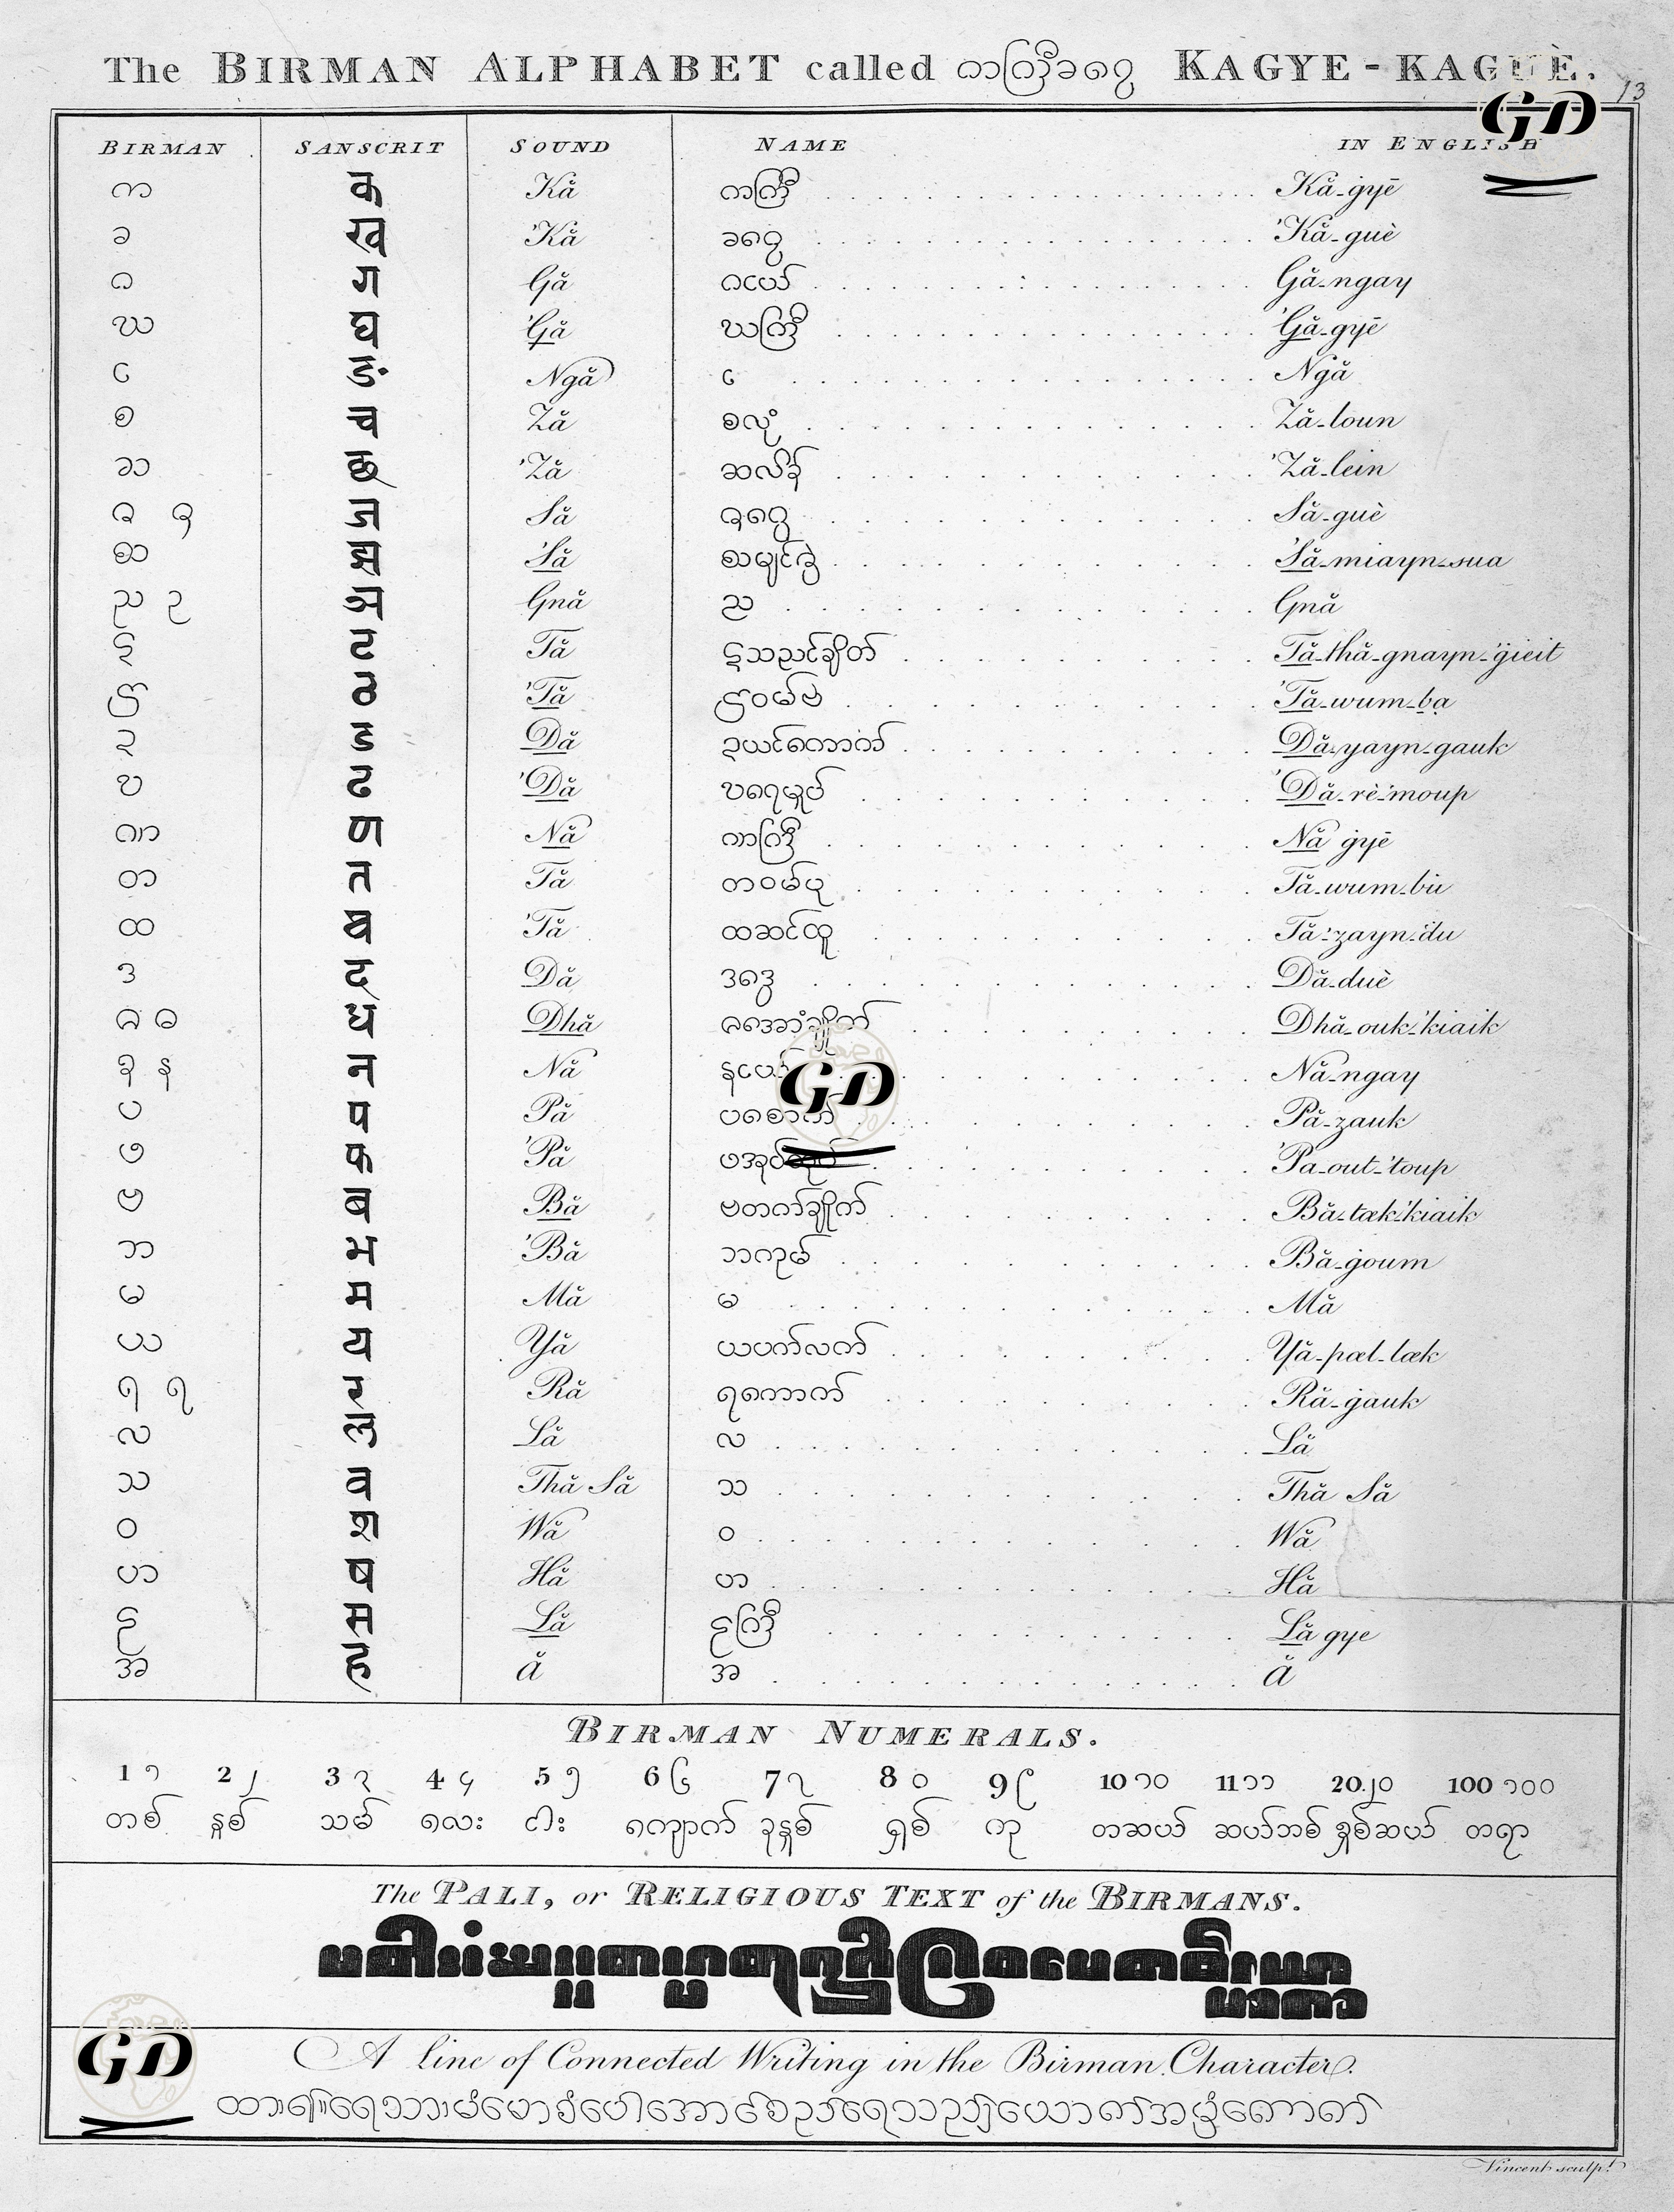 The BIRMAN ALPHABET called ကကြီးခခွေ KAGYE-KAGUÈ.
13
GD
BIRMAN SANSCRIT SOUND NAME IN ENGLISH
က क Kă ကကြီ Kă-gyē
ခ ख 'Kă ခခွေ 'Kă-guè
ဂ ग Gă ဂငယ် Gă-ngay
ဃ घ 'Gă ဃကြီ 'Gă-gyē
င ङ Ngă င Ngă
စ च Ză စလုံ Ză-loun
ဆ छ 'Ză ဆလိန် 'Ză-lein
ဇ ဇ ज Să ဇဂွေ Să-guè
ဈ झ 'Să 'Să-miayn-sua
ည ဉ ञ Gnă ည Gnă
ဋ ट Tă ဋသညင်ချိတ် Tă-thă-gnayn-'gieit
ဌ ठ 'Tă ဌဝမ်ဗဲ 'Tă-wum-ba
ဍ ड Dă ဍယင်ကောက် Dă-yayn-gauk
ဎ ढ 'Dă ဎရေမှုပ် 'Dă-rè-'moup
ဏ ण Nă ဏကြီ Nă gyē
တ त Tă တဝမ်ပု Tă-wum-bù
ထ थ 'Tă ထဆင်ထူ Tă-'zayn-'du
ဒ द Dă ဒဒွေ Dă-duè
ဓ ဓ ध Dhă ဓအောံချိုက် Dhă-ouk-'kiaik
န န न Nă နငယ် Nă-ngay
ပ प Pă ပစောက် Pă-zauk
ဖ फ 'Pă ဖအုပ်ထုပ် 'Pa-out-'toup
ဗ ब Bă ဗတက်ချိုက် Bă-tæk-'kiaik
ဘ भ 'Bă ဘကုမ် Bă-goum
မ म Mă မ Mă
ယ य Yă ယပက်လက် Yă-pæl-læk
ရ ရ र Ră ရကောက် Ră-gauk
လ ल Lă လ Lă
သ व Thă Să သ Thă Să
ဝ श Wă ဝ Wă
ဟ ष Hă ဟ Hă
ဠ स Lă ဠကြီ Lă gye
အ ह ă အ ă
GD
BIRMAN NUMERALS.
1 ၁ 2 ၂ 3 ၃ 4 ၄ 5 ၅ 6 ၆ 7 ၇ 8 ၀ 9 ၉ 10 ၁၀ 11 ၁၁ 20 ၂၀ 100 ၁၀၀
တစ် နှစ် သမ် လေး ငါး ကျောက် ခုနှစ် ရှစ် ကု တဆယ် ဆယ်ဘစ် နှစ်ဆယ် တရာ
The PALI, or RELIGIOUS TEXT of the BIRMANS.
GD
A line of Connected Writing in the Birman Character.
Vincent sculpt.